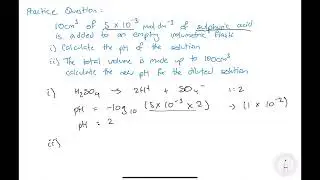 Practice Question:
10cm³ of 5 × 10⁻³ mol dm⁻³ of sulphuric acid
is added to an empty volumetric flask
i) Calculate the pH of the solution
ii) The total volume is made up to 100cm³
calculate the new pH for the diluted solution
i) H₂SO₄ → 2H⁺ + SO₄⁻ 1:2
pH = -log₁₀ (5 × 10⁻³ × 2) → (1 × 10⁻²)
pH = 2
ii)